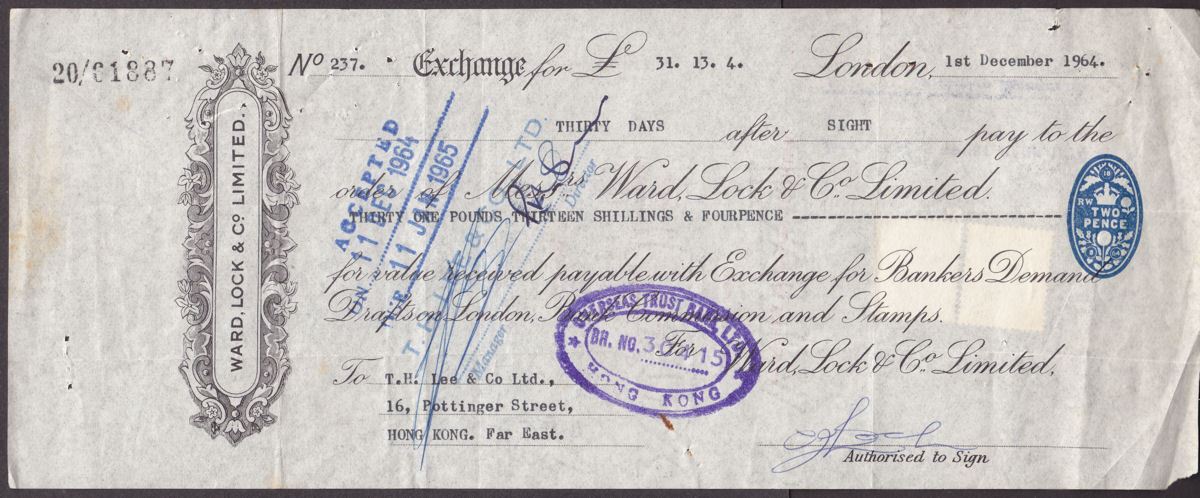 20/61887
WARD, LOCK & Co. LIMITED.
No 237. Exchange for £ 31. 13. 4. London, 1st December 1964.
THIRTY DAYS after SIGHT pay to the
order of Messrs Ward, Lock & Co. Limited.
THIRTY ONE POUNDS THIRTEEN SHILLINGS & FOURPENCE
for value received payable with Exchange for Bankers Demand
Drafts on London, Bank Commission and Stamps.
For Ward, Lock & Co. Limited,
To T.H. Lee & Co Ltd.,
16, Pottinger Street,
HONG KONG. Far East.
Authorised to Sign
ACCEPTED
ON 11 DEC 1964
DUE 11 JAN 1965
T. H. LEE & CO. LTD.
Manager Director
OVERSEAS TRUST BANK, LTD.
BR. NO.
HONG KONG
RW
TWO
PENCE